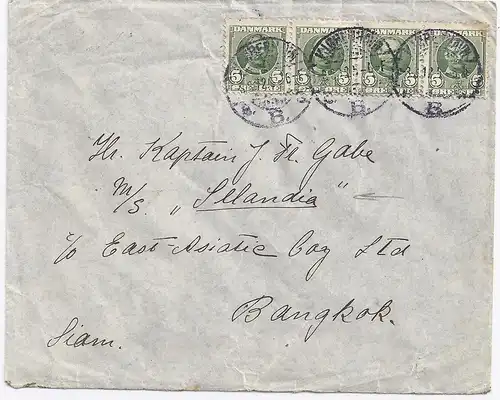 DANMARK DANMARK DANMARK DANMARK
5 5 5 5 5 5 5
ØRE ØRE ØRE ØRE
B. B. B.
Hr. Kaptain J. Fr. Gabe
M/S. „Sellandia"
c/o East-Asiatic Coy Ltd
Bangkok.
Siam.